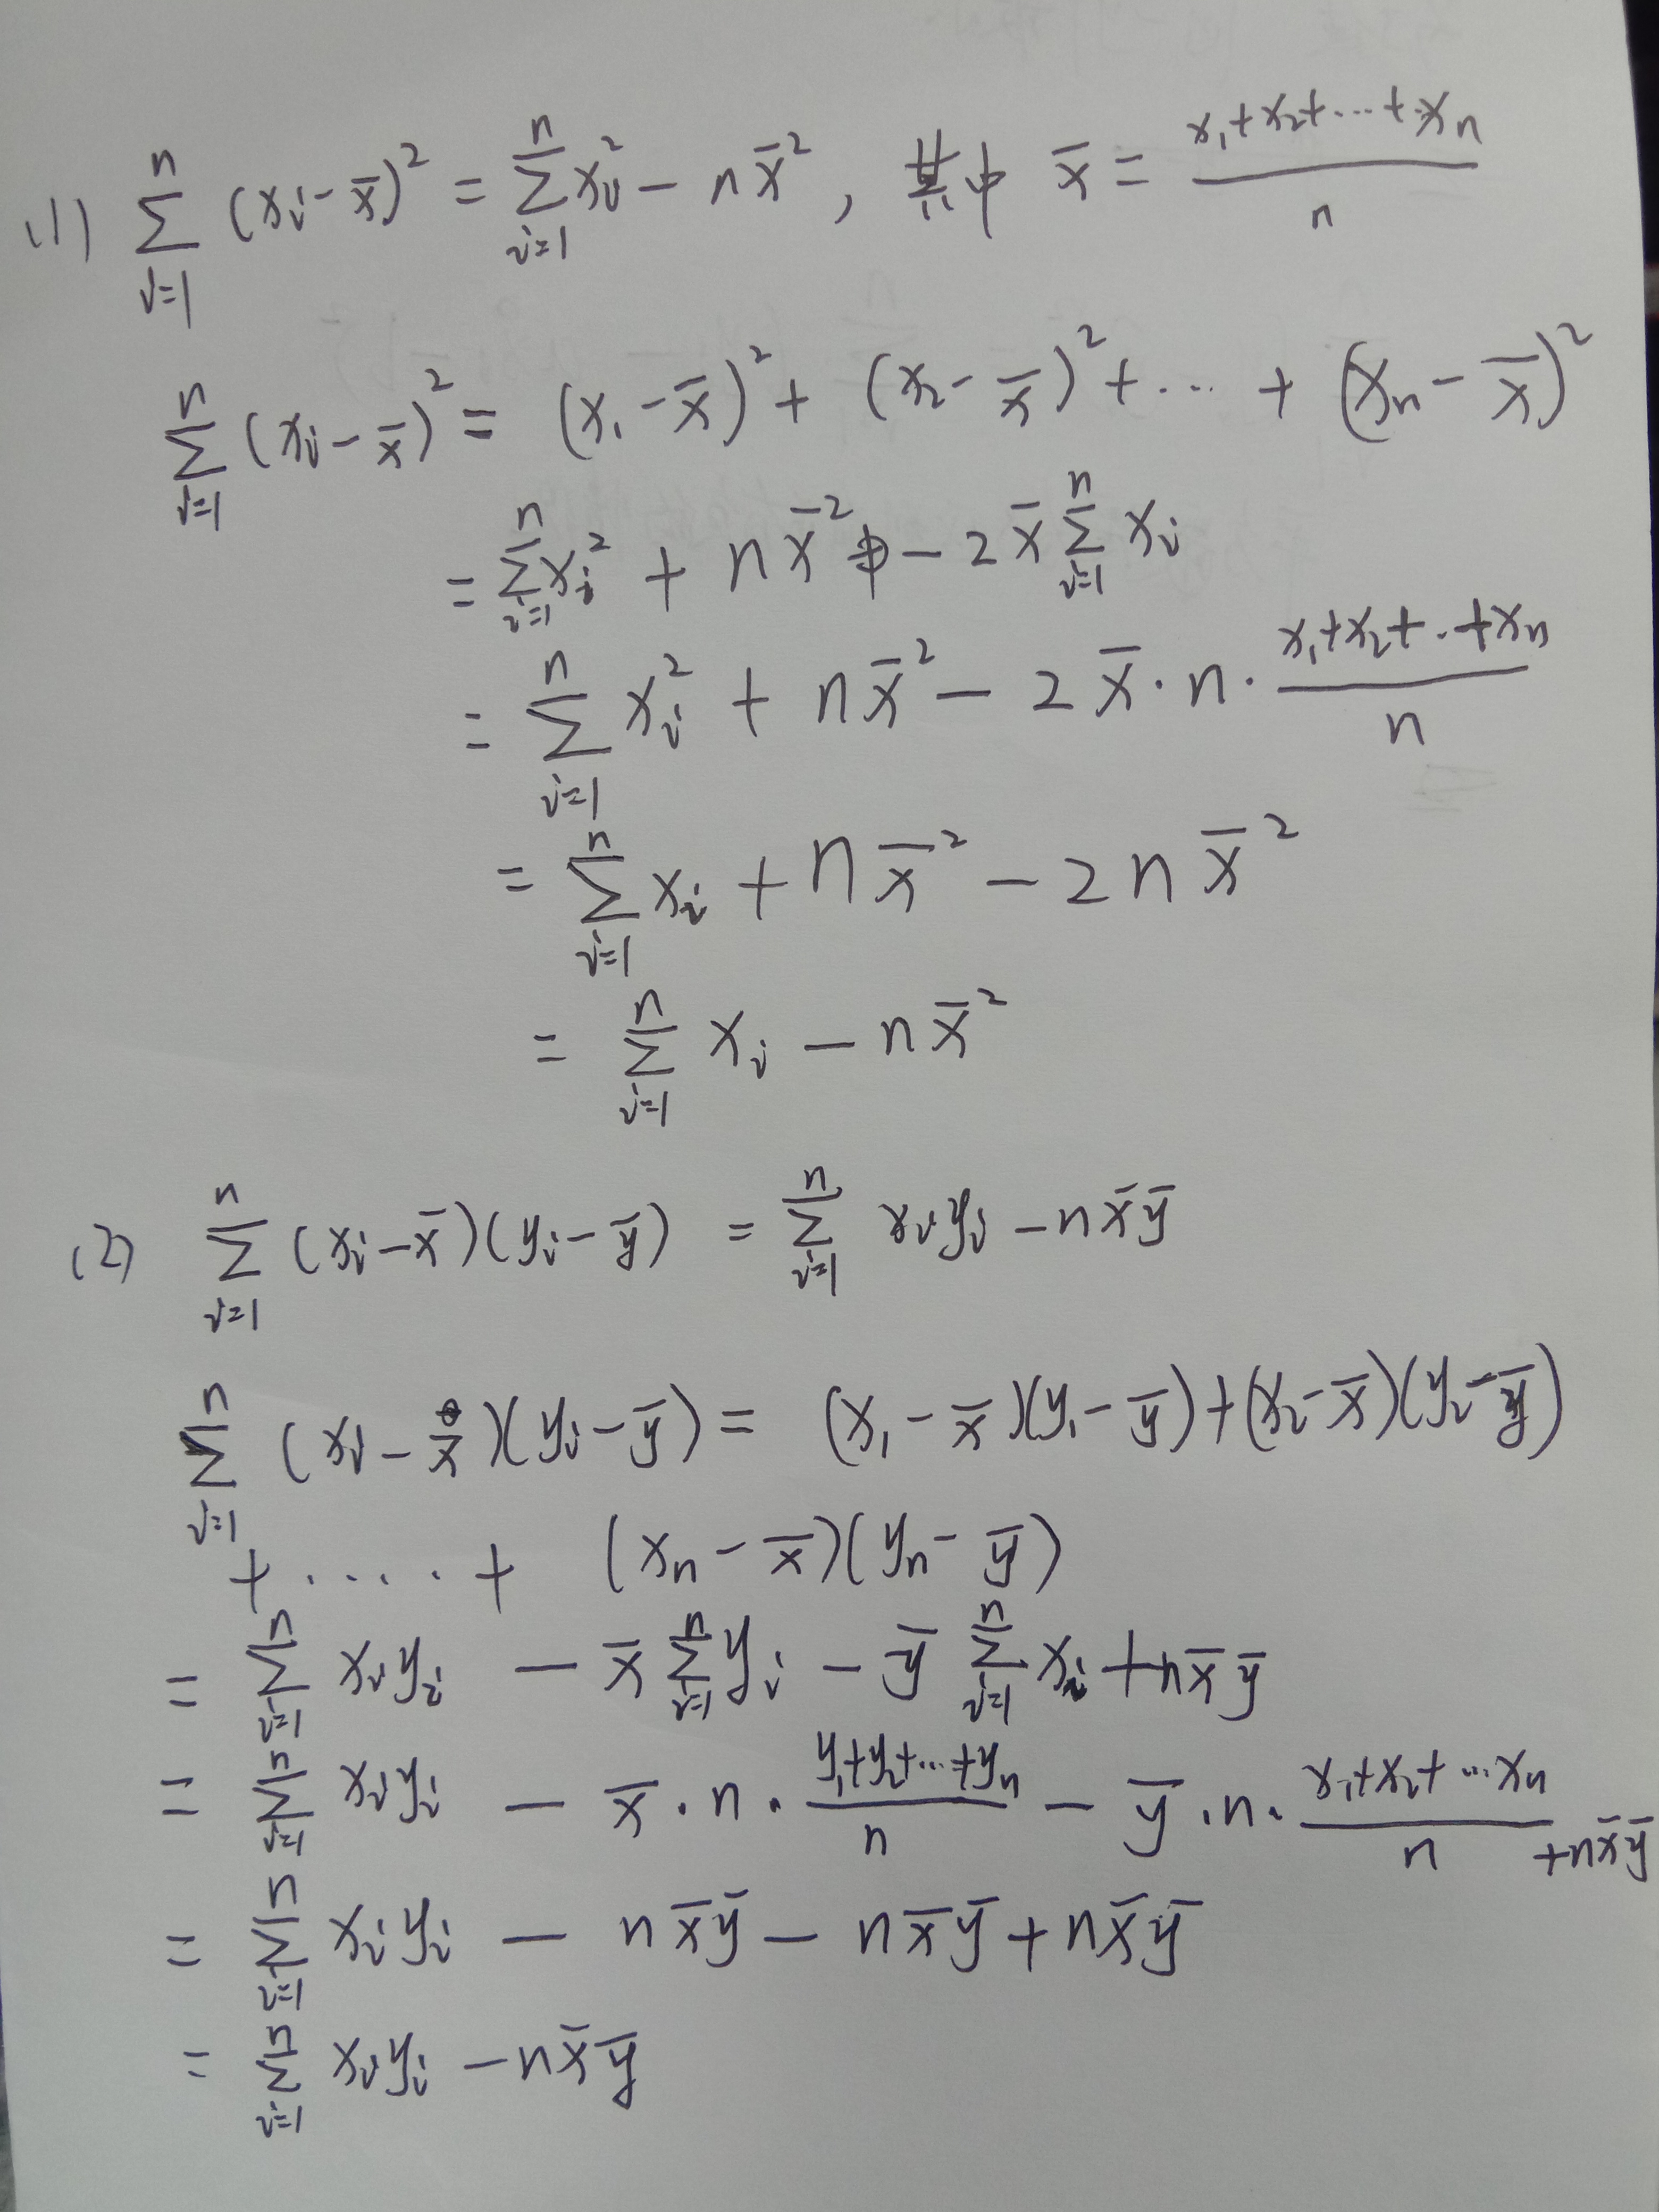 (1) \sum_{i=1}^{n} (x_i - \bar{x})^2 = \sum_{i=1}^{n} x_i^2 - n\bar{x}^2 , 其中 \bar{x} = \frac{x_1+x_2+\cdots+x_n}{n}
\sum_{i=1}^{n} (x_i - \bar{x})^2 = (x_1 - \bar{x})^2 + (x_2 - \bar{x})^2 + \cdots + (x_n - \bar{x})^2
= \sum_{i=1}^{n} x_i^2 + n\bar{x}^2 - 2\bar{x} \sum_{i=1}^{n} x_i
= \sum_{i=1}^{n} x_i^2 + n\bar{x}^2 - 2\bar{x} \cdot n \cdot \frac{x_1+x_2+\cdots+x_n}{n}
= \sum_{i=1}^{n} x_i + n\bar{x}^2 - 2n\bar{x}^2
= \sum_{i=1}^{n} x_i - n\bar{x}^2
(2) \sum_{i=1}^{n} (x_i - \bar{x})(y_i - \bar{y}) = \sum_{i=1}^{n} x_i y_i - n\bar{x}\bar{y}
\sum_{i=1}^{n} (x_i - \bar{x})(y_i - \bar{y}) = (x_1 - \bar{x})(y_1 - \bar{y}) + (x_2 - \bar{x})(y_2 - \bar{y})
+ \cdots\cdots + (x_n - \bar{x})(y_n - \bar{y})
= \sum_{i=1}^{n} x_i y_i - \bar{x} \sum_{i=1}^{n} y_i - \bar{y} \sum_{i=1}^{n} x_i + n\bar{x}\bar{y}
= \sum_{i=1}^{n} x_i y_i - \bar{x} \cdot n \cdot \frac{y_1+y_2+\cdots+y_n}{n} - \bar{y} \cdot n \cdot \frac{x_1+x_2+\cdots x_n}{n} + n\bar{x}\bar{y}
= \sum_{i=1}^{n} x_i y_i - n\bar{x}\bar{y} - n\bar{x}\bar{y} + n\bar{x}\bar{y}
= \sum_{i=1}^{n} x_i y_i - n\bar{x}\bar{y}